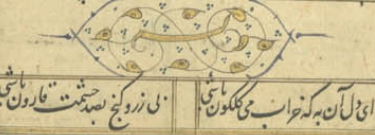 ای دل آن به که خراب می گلگون باشی
بی زر و گنج بصد حشمت قارون باشی